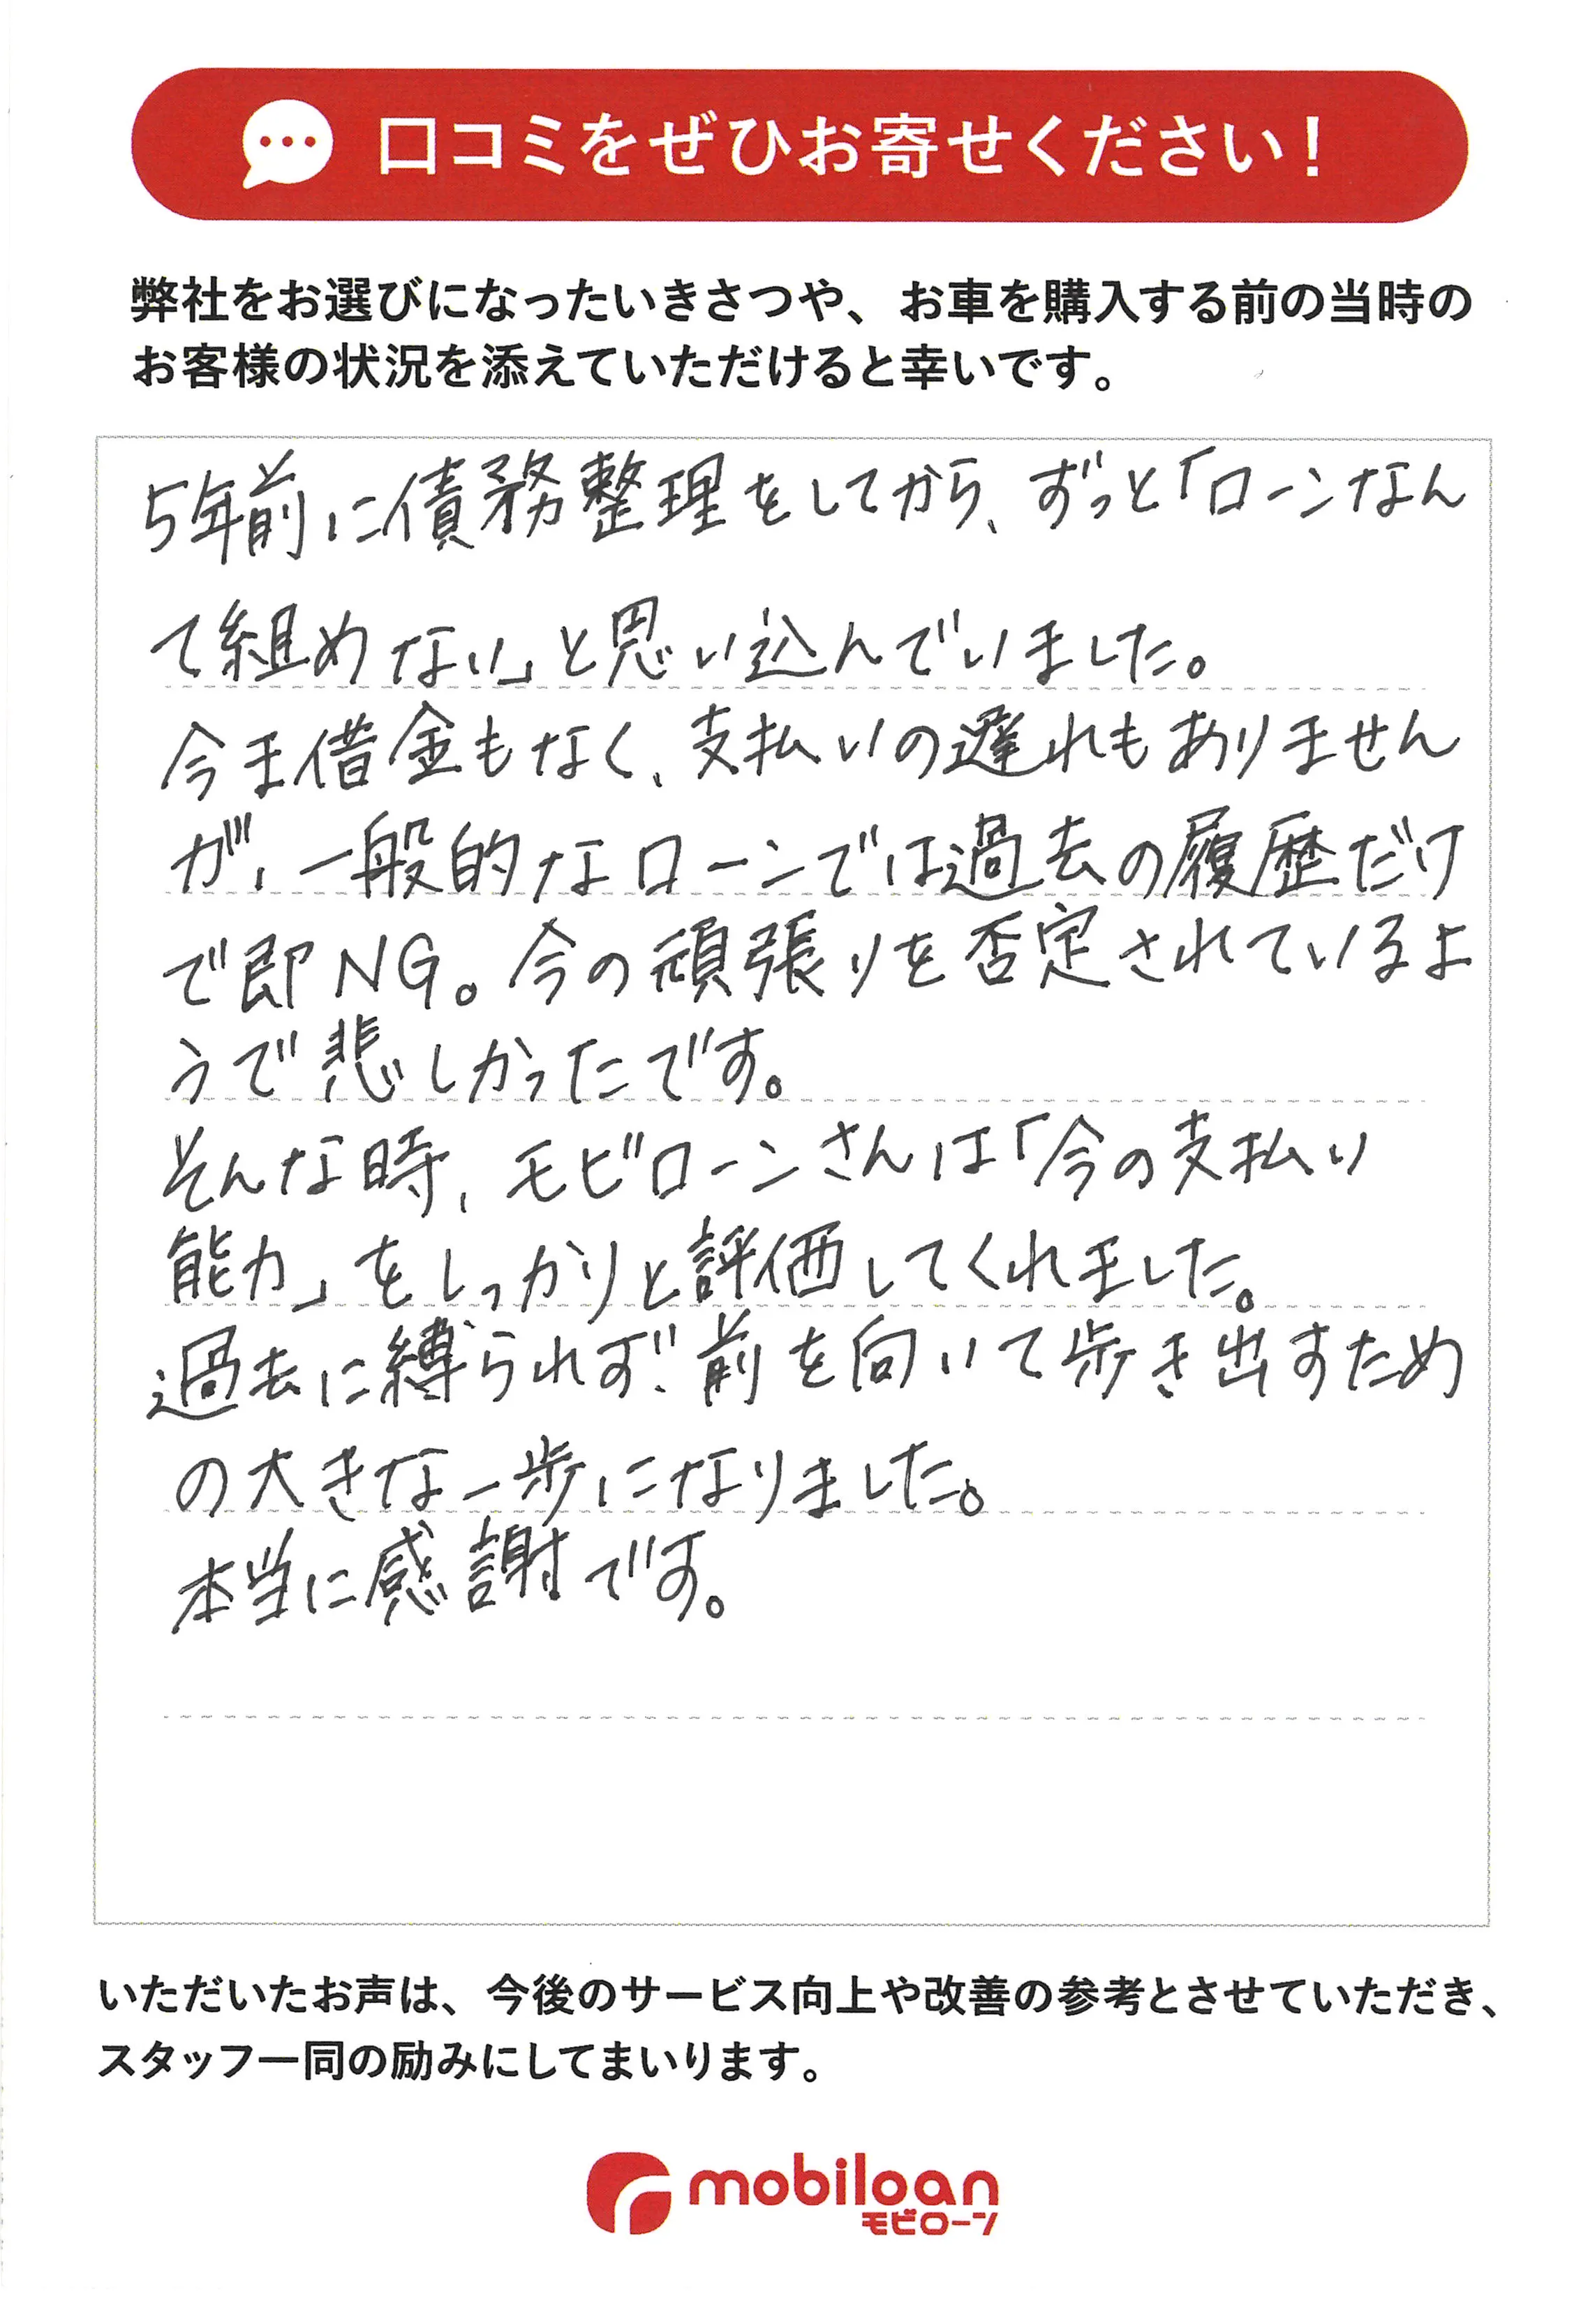 口コミをぜひお寄せください！
弊社をお選びになったいきさつや、お車を購入する前の当時の
お客様の状況を添えていただけると幸いです。
5年前に債務整理をしてから、ずっと「ローンなん
て組めない」と思い込んでいました。
今ま借金もなく、支払いの遅れもありません
が、一般的なローンでは過去の履歴だけ
で即NG。今の頑張りを否定されているよ
うで悲しかったです。
そんな時、モビローンさんは「今の支払い
能力」をしっかりと評価してくれました。
過去に縛られず、前を向いて歩き出すため
の大きな一歩になりました。
本当に感謝です。
いただいたお声は、今後のサービス向上や改善の参考とさせていただき、
スタッフ一同の励みにしてまいります。
mobiloan
モビローン